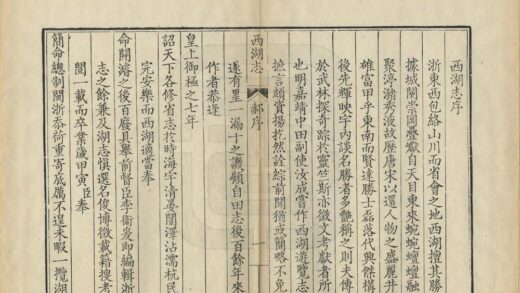 西湖志序
浙東西包絡山川而省會之地西湖擅其勝
據城闉崇岡疊嶽自天目東來蜿蜒蟺融
聚渟滀秀液故歷唐宋以還人物之盛麗井
碓富甲乎東南而賢達勝士磊落代興傑構
後先輝映宇內談名勝者多艷稱之則夫傳
於武林探奇踪於靈竺斯亦徵文考獻者所
也明嘉靖中田副使汝成嘗作西湖遊覽志
摭言頗資揚扢然詮綜前聞猶或簡略不免
西湖志 郝序 一
遂有罣漏十之譏顧自田志後百餘年來
作者恭逢
皇上御極之七年
詔天下各修省志於時海宇清晏闓澤沾濡杭民
完安樂而西湖適當奉
命開濬之後百廢具舉前督臣李衛爰即編輯浙
志之餘兼及湖志慎選名俊博徵載籍搜考
閱一載而卒業歲甲寅臣奉
簡命總制閩浙忝荷重寄厎厲不遑未暇一攬湖